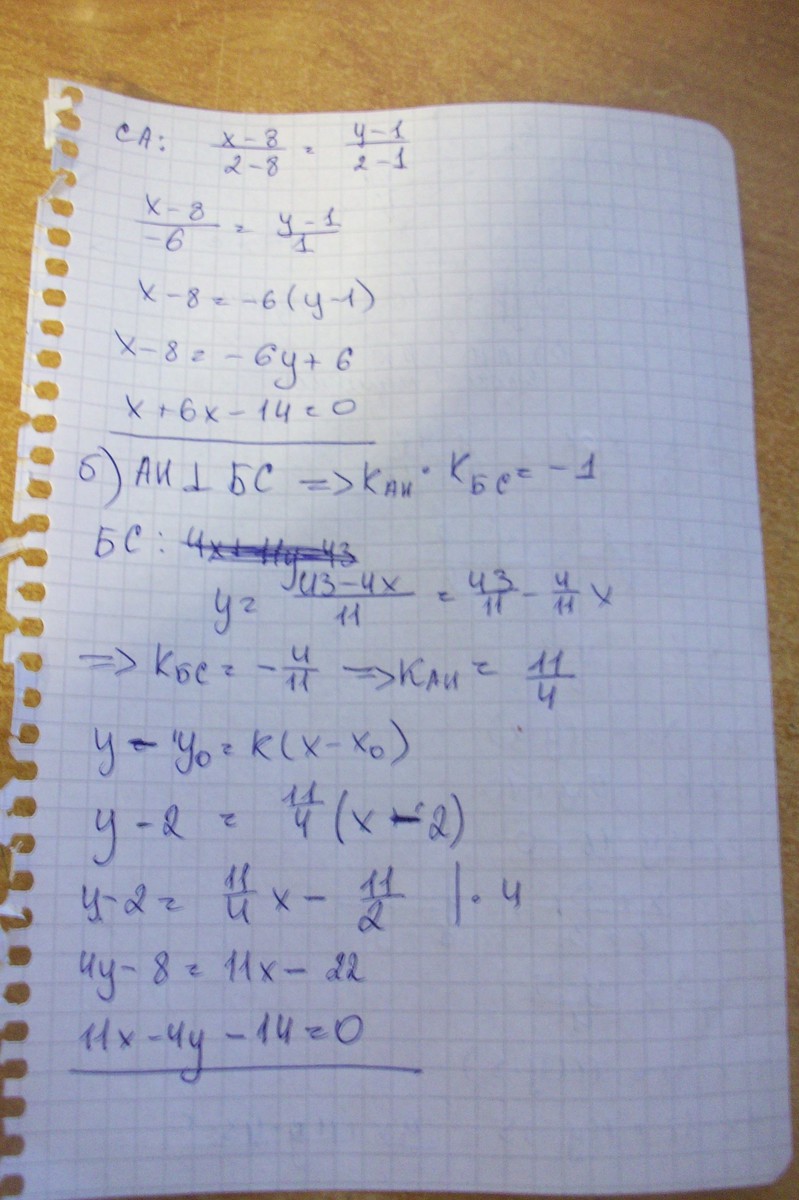 CA: (x-8)/(2-8) = (y-1)/(2-1)
(x-8)/(-6) = (y-1)/1
x-8 = -6(y-1)
x-8 = -6y+6
x+6x-14=0
б) AH ⊥ БС => K_AH · K_БС = -1
БС:
y = (43-4x)/11 = 43/11 - 4/11 x
=> K_БС = -4/11 => K_AH = 11/4
y - y₀ = k(x-x₀)
y-2 = 11/4 (x-2)
y-2 = 11/4 x - 11/2 | · 4
4y-8 = 11x-22
11x-4y-14=0